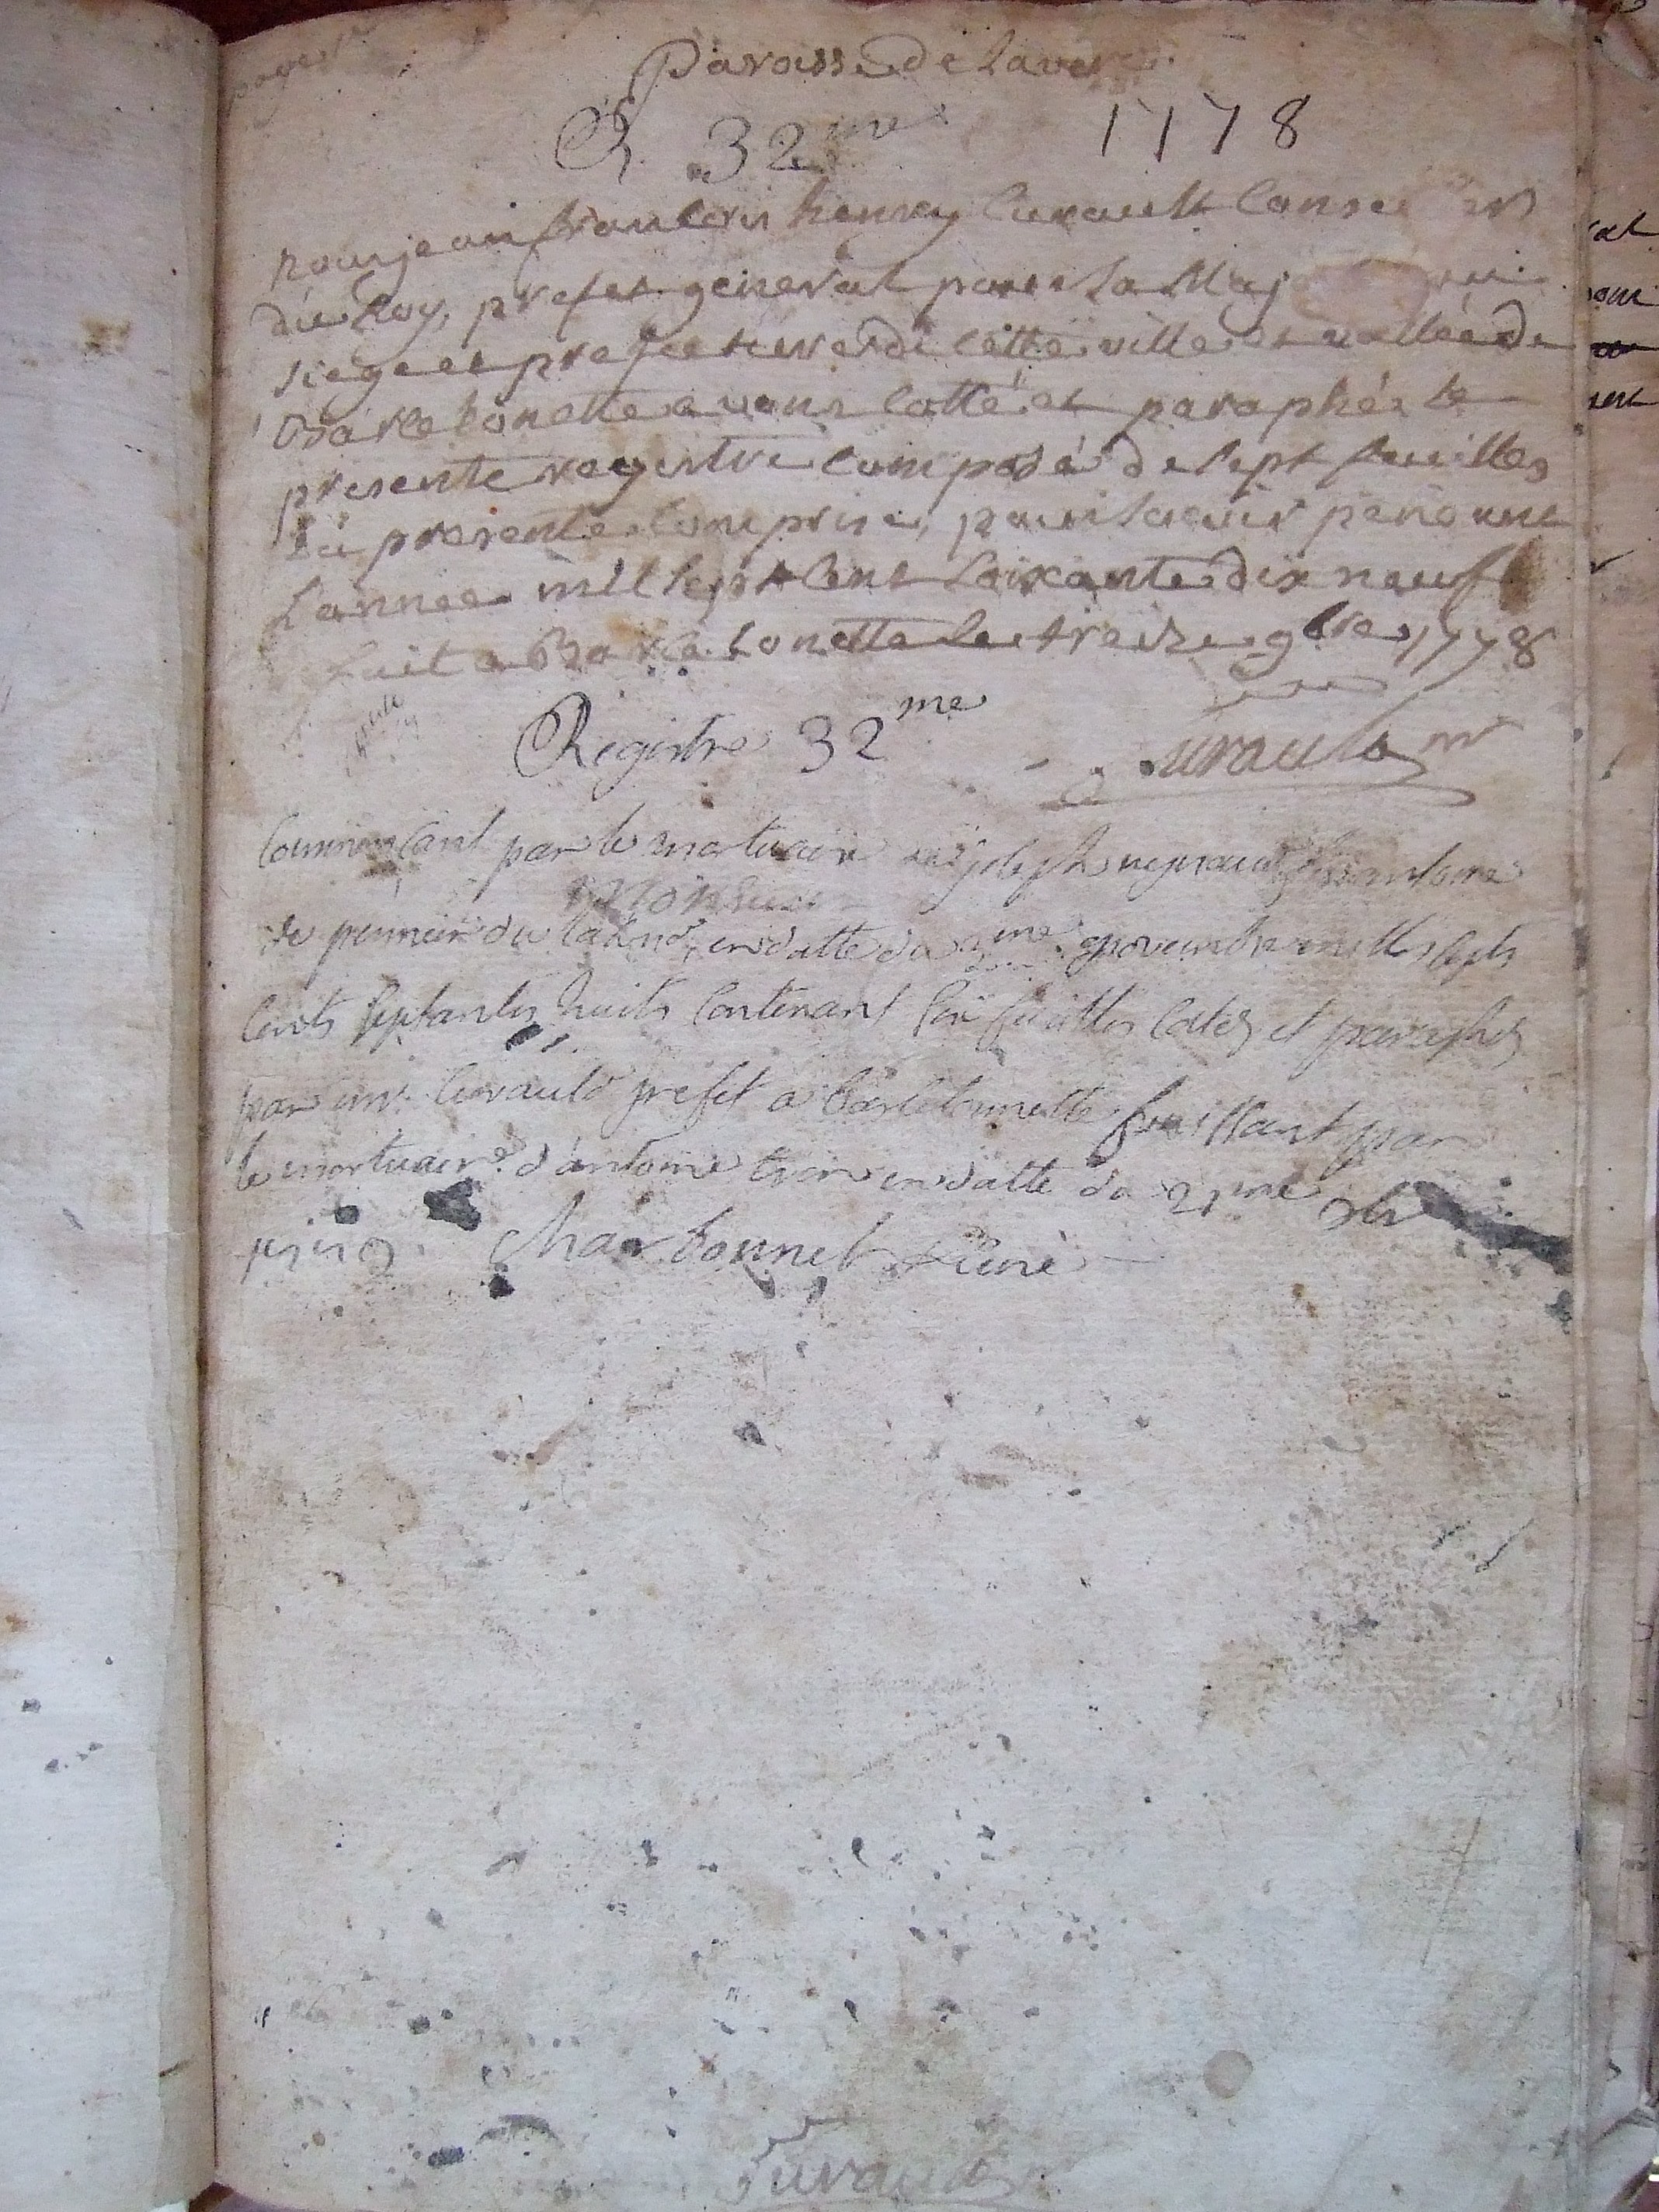 page 1r
Paroisse de Laver
R. 32me 1778
nous jean francois henry Curault Conse er
du Roy, prefet general pour sa Maj
siege et prefecture de cette ville et vallée de
Barcelonette avons cotté et paraphé le
present registre composé de sept feuilles
La presente comprise, pour servir pendant
L'année mil sept cent soixante dix neuf
fait a Barcelonette le treize 9bre 1778
Registre 32me
Curault
Commencant par le mortuaire de joseph d'antoine
de premier du en datte du 9me novembre mille septs
Cents septantes huits Contenant six feuilles Cotez et paraphez
par mr. Curault prefet a Barcelonnette finissant par
le mortuaire d'antoine tron en datte du 21me Xbr
1779 Charbonnel Curé
Curault